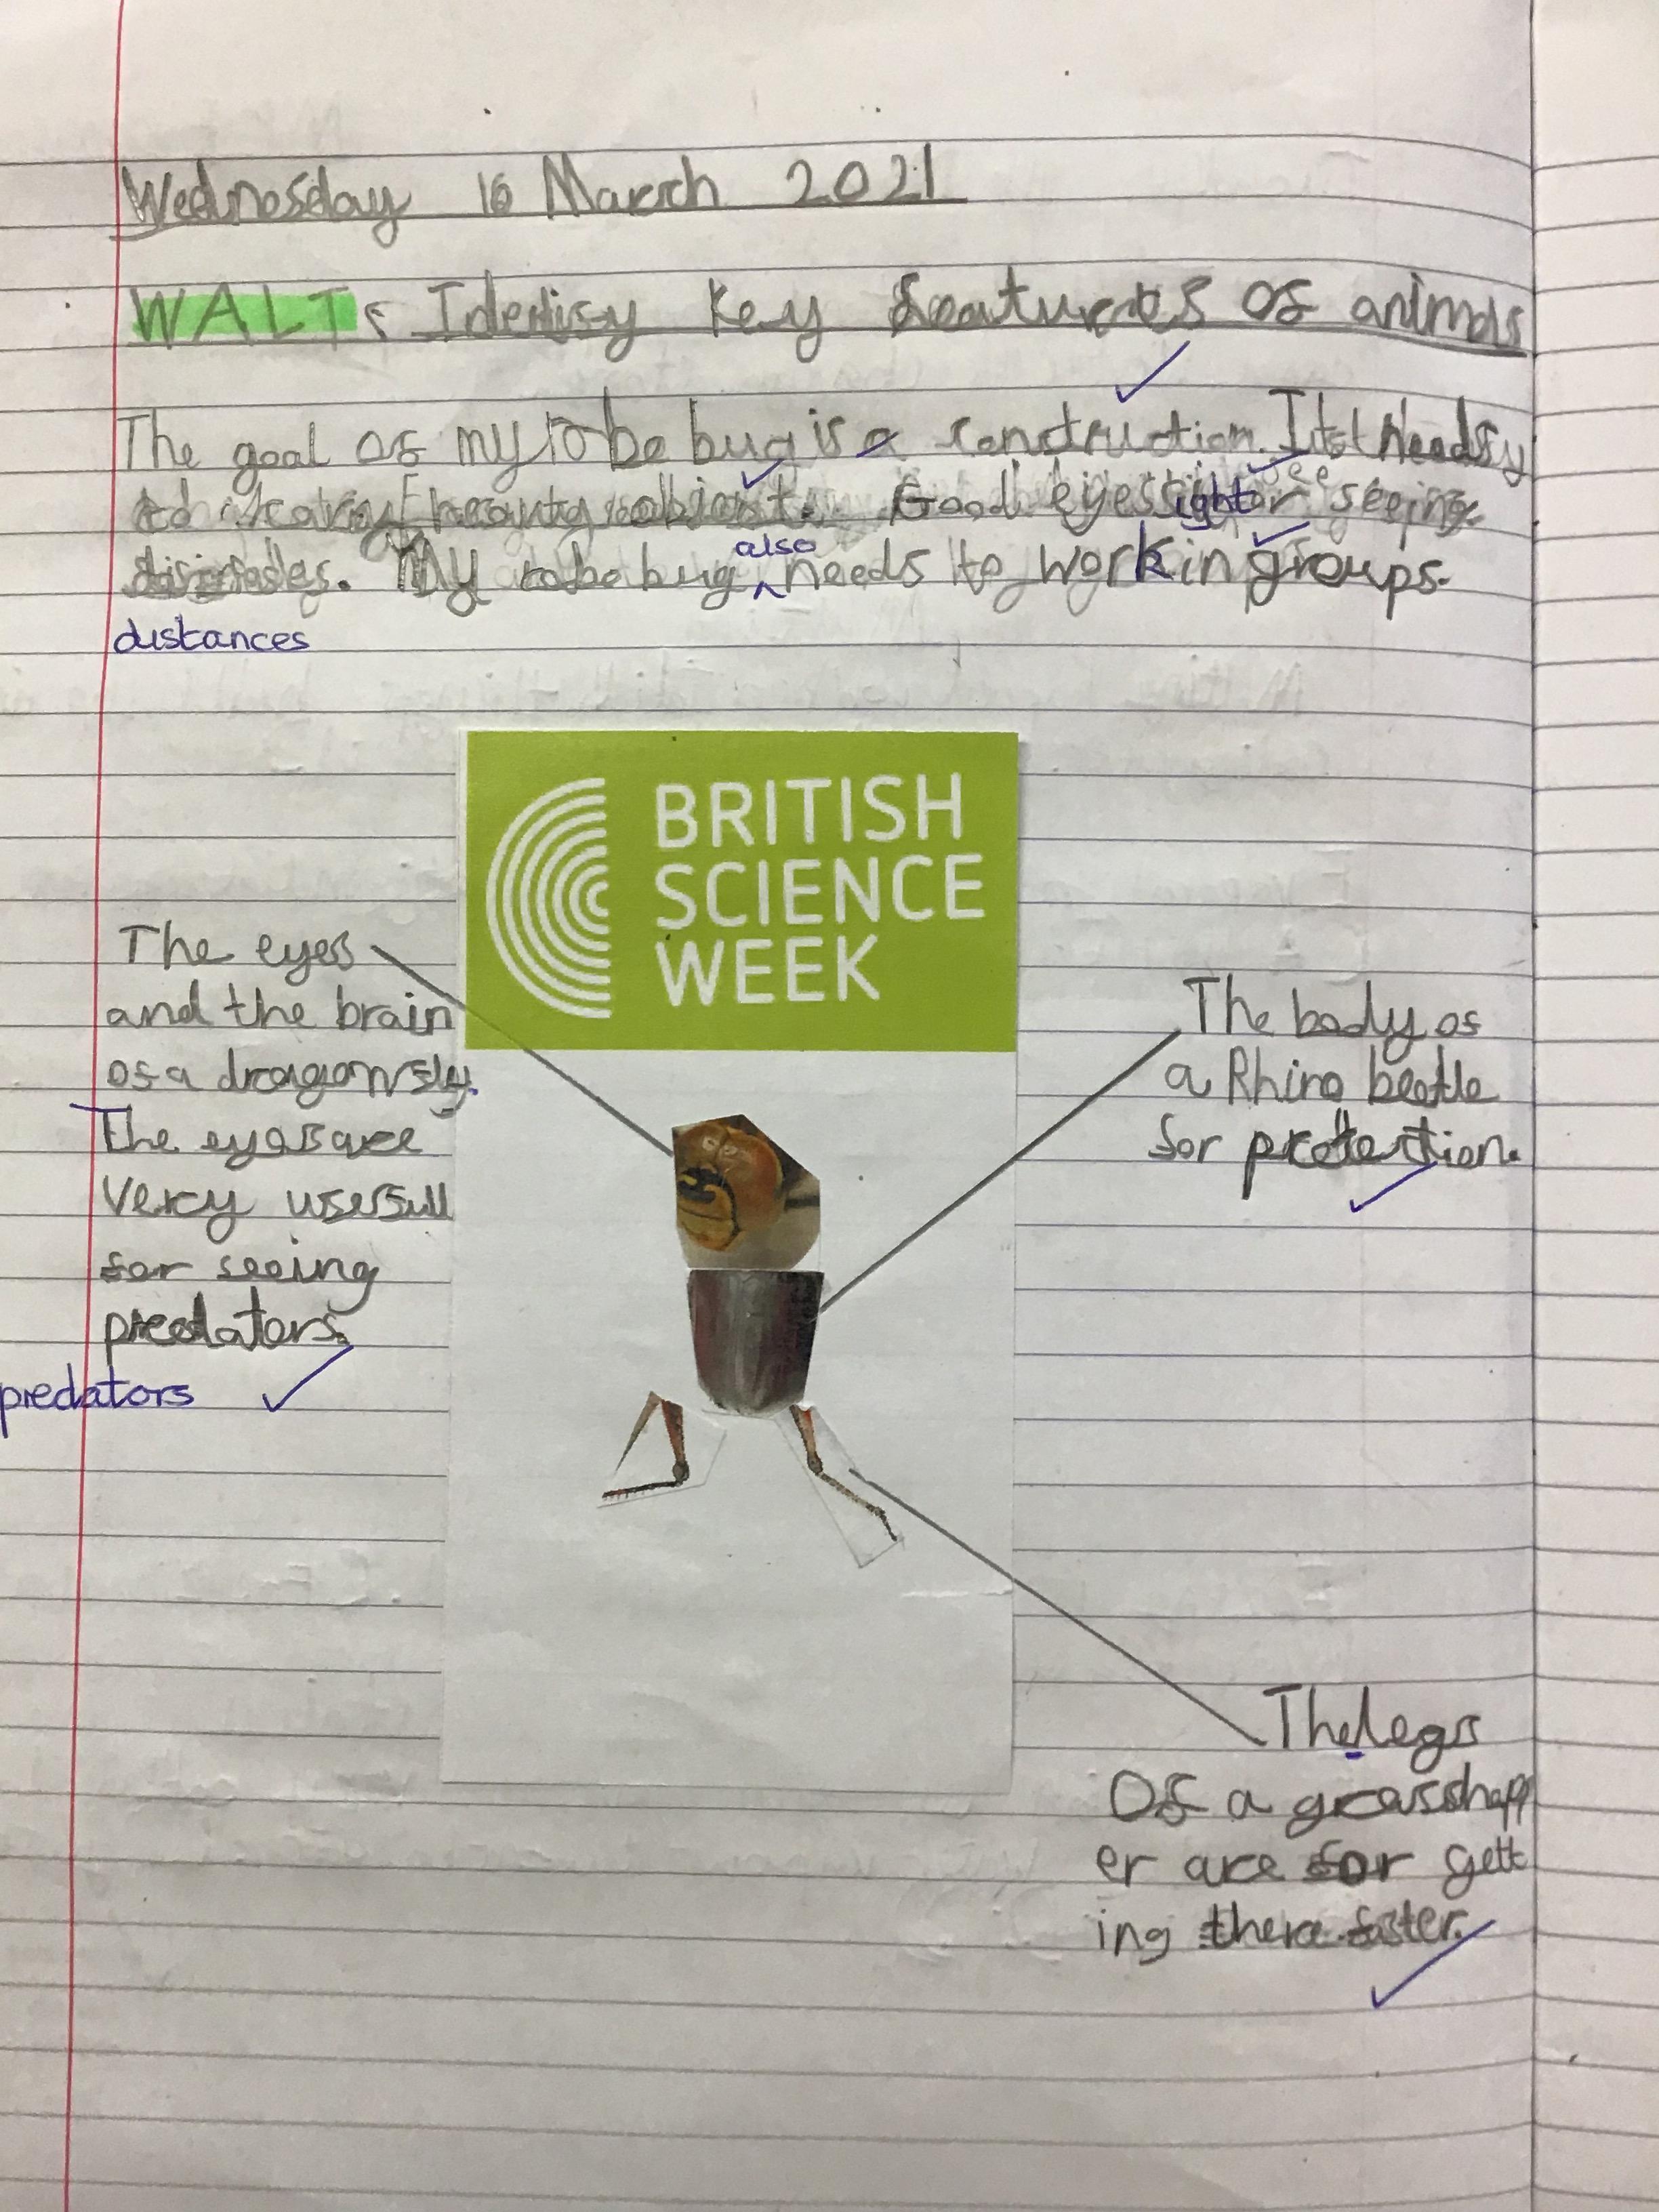 Wednesday 16 March 2021
WALT: Identify key features of animals
The goal of my robo bug is a construction. It needs
to carry heavy objects. Good eyesight for seeing
distances. My robo bug also needs to work in groups.
distances
BRITISH
SCIENCE
WEEK
The eyes
and the brain
of a dragonfly.
The eyes are
very usefull
for seeing
predators.
predators
The body of
a Rhino beetle
for protection.
The legs
Of a grasshopp
er are for gett
ing there faster.